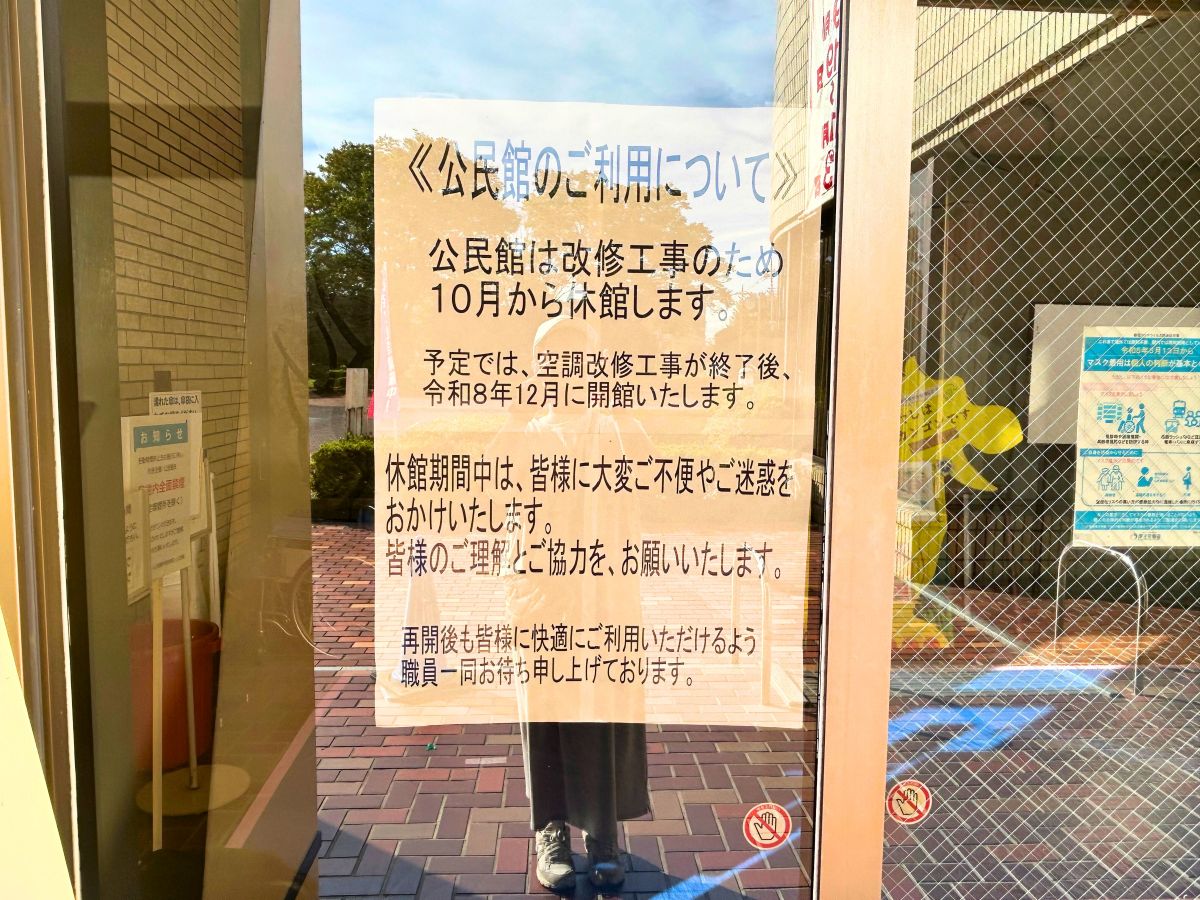 《公民館のご利用について》
公民館は改修工事のため
10月から休館します。
予定では、空調改修工事が終了後、
令和8年12月に開館いたします。
休館期間中は、皆様に大変ご不便やご迷惑を
おかけいたします。
皆様のご理解とご協力を、お願いいたします。
再開後も皆様に快適にご利用いただけるよう
職員一同お待ち申し上げております。
お知らせ
内全面禁煙
令和5年3月13日から
マスク着用は個人の判断が基本と